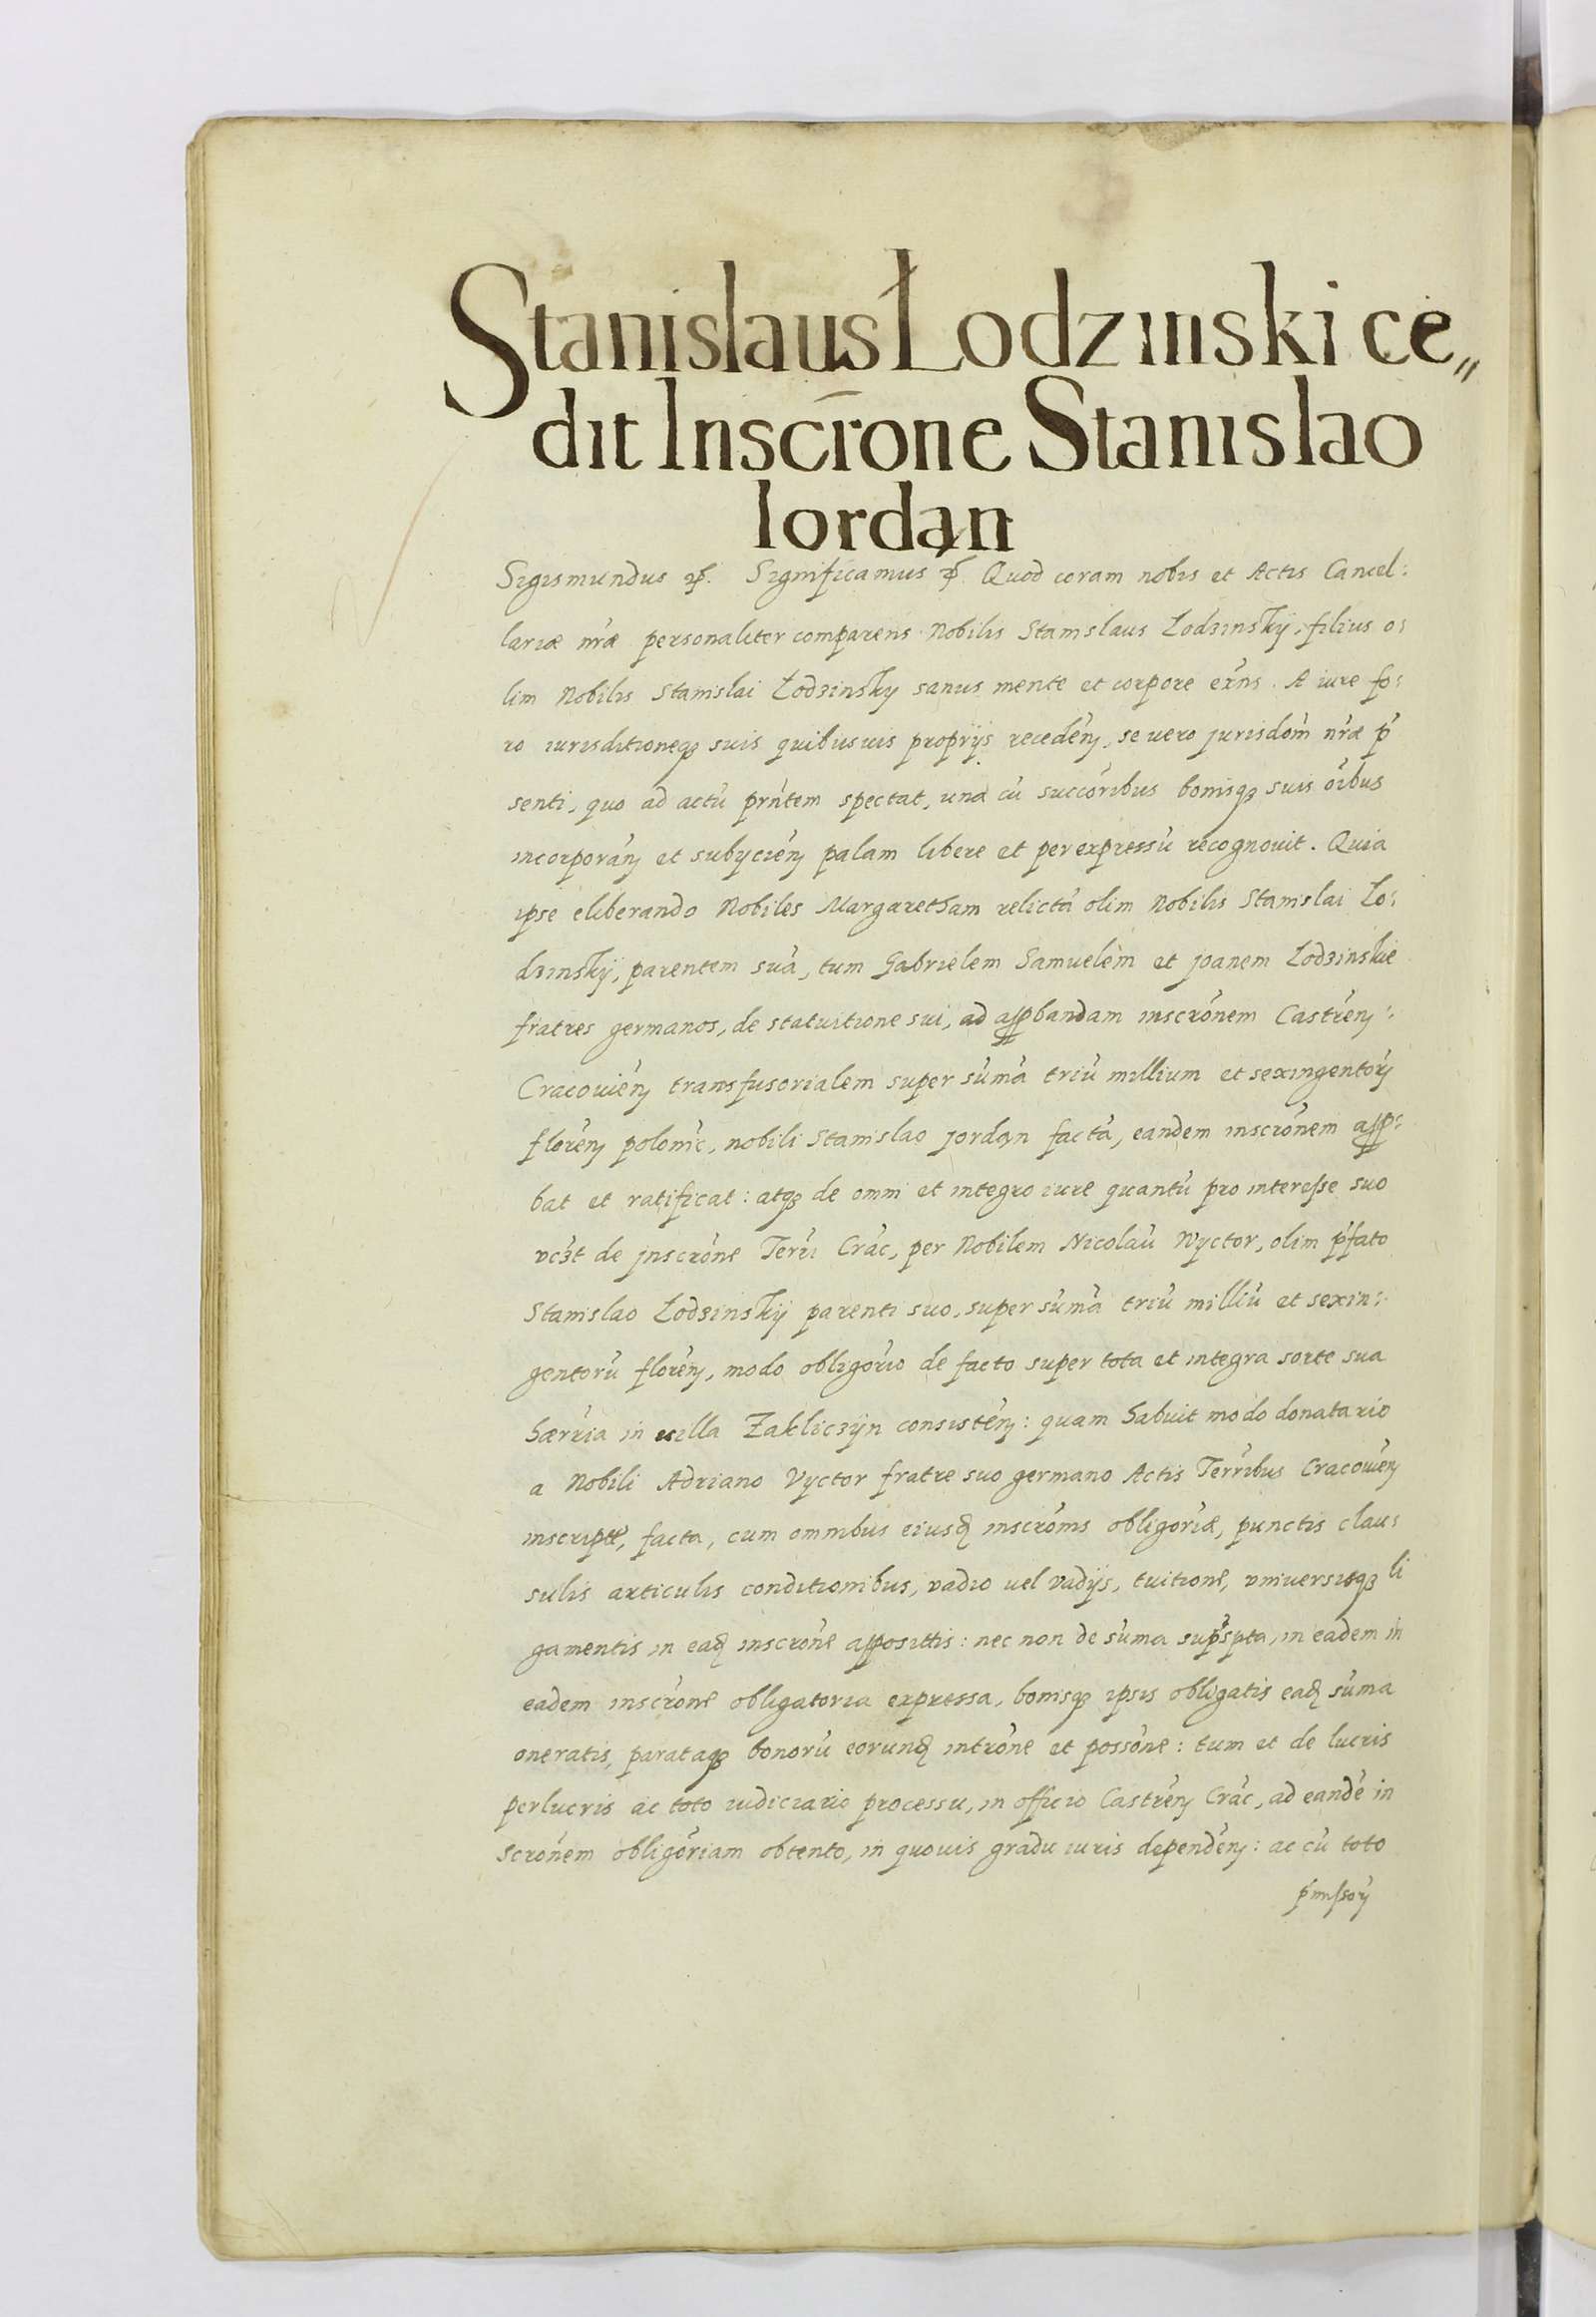 Stanislaus Łodzinski ce„
dit Inscr̄one Stanislao
Iordan
Sigismundus etc. Significamus etc. Quod coram nobis et Actis Cancel:
lariæ nr̃æ personaliter comparens Nobilis Stanislaus Łodzinskÿ, filius o:
lim Nobilis Stanislai Łodzinsky sanus mente et corpore ex̃ns. A iure fo:
ro iurisditioneqʒ suis quibusuis proprijs recedeñ, se uero jurisdom̃ nr̃æ p̃
senti, quo ad actũ prñtem spectat, una cũ succor̃ibus bonisqʒ suis oĩbus
incorporañ et subijcieñ palam libere et per expressũ recognouit. Quia
ipse eliberando Nobiles Margaretham relictã olim Nobilis Stanislai Ło:
dzinskÿ, parentem suã, tum Gabrielem Samuelem et Joanem Łodzinskie
fratres germanos, de statuitione sui, ad appbandam inscrõnem Castreñ:
Cracouieñ transfusorialem super sum̃a triũ millium et sexingentor̃
floreñ polonic̃, nobili Stanislao Jordan factã, eandem inscrõnem app:
bat et ratificat: atqʒ de omni et integro iure quantũ pro interesse suo
vcʒt de jnscrõne Terr̃i Crac̃, per Nobilem Nicolaũ Wyctor, olim p̃fato
Stanislao Łodzinskij parenti suo, super sum̃a triũ milliũ et sexin:
gentorũ floreñ, modo obligor̃io de facto super tota et integra sorte sua
hær̃ria in uilla Zakliczÿn consisteñ: quam habuit modo donatario
a Nobili Adriano Vyctor fratre suo germano Actis Terr̃ibus Cracouieñ
inscriptæ, facta, cum omnibus eiusdꝫ inscrõnis obligor̃iæ, punctis clau:
sulis articulis conditionibus, vadio uel vadijs, tuitione, vniuersisqʒ li
gamentis in eadꝫ inscrõne appositis: nec non de sum̃a sup̃spta, in eadem in
eadem inscrõne obligatoria expressa, bonisqʒ ipsis obligatis eadꝫ sum̃a
oneratis, parataqʒ bonorũ eorundꝫ intrõne et possõne: tum et de lucris
perlucris ac toto iudiciario processu, in officio Castreñ Crac̃, ad eandẽ in
scrõnem obligor̃iam obtento, in quouis gradu iuris dependeñ: ac cũ toto
p̃missor̃